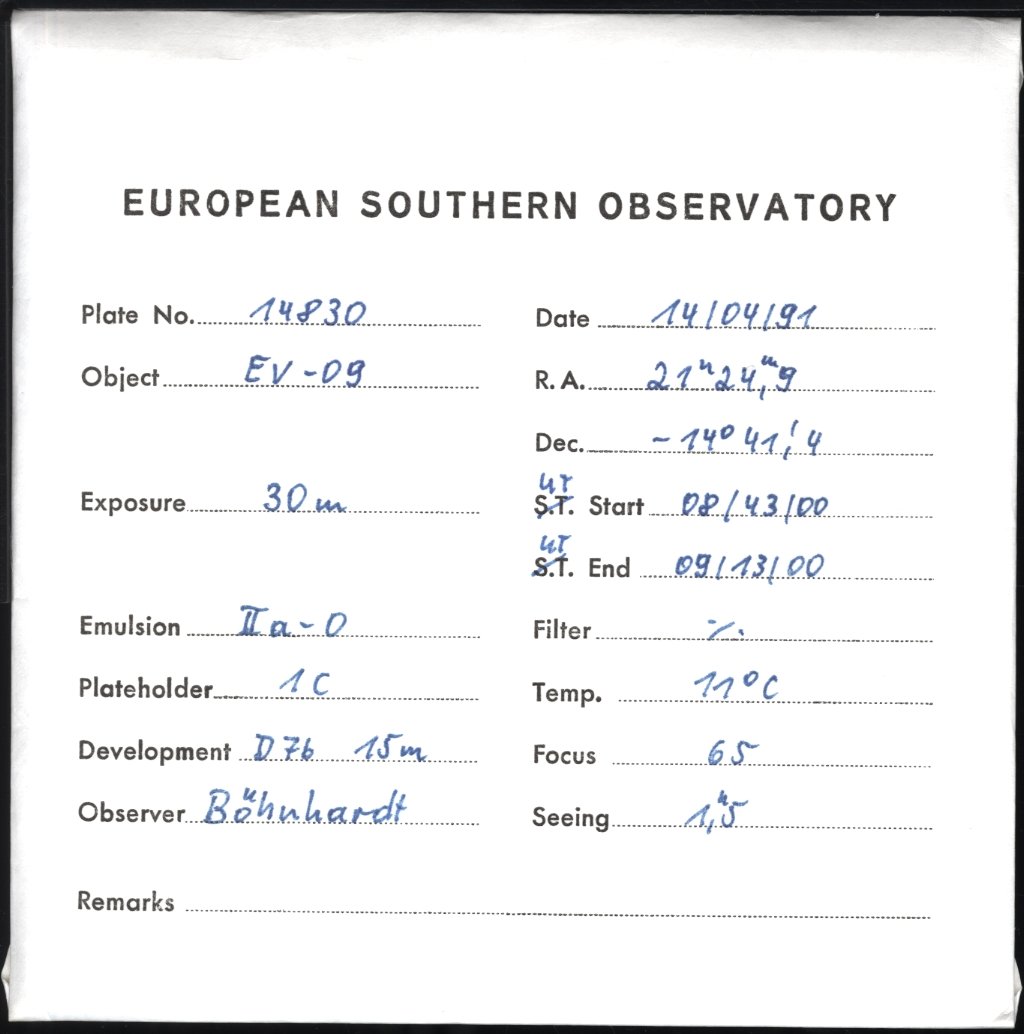 EUROPEAN SOUTHERN OBSERVATORY
Plate No. 14830 Date 14/04/91
Object EV-09 R.A. 21ʰ24,ᵐ9
Dec. -14° 41,'4
Exposure 30m UT S.T. Start 08/43/00
UT S.T. End 09/13/00
Emulsion IIa-O Filter ·/.
Plateholder 1C Temp. 11°C
Development D76 15m Focus 65
Observer Böhnhardt Seeing 1,"5
Remarks